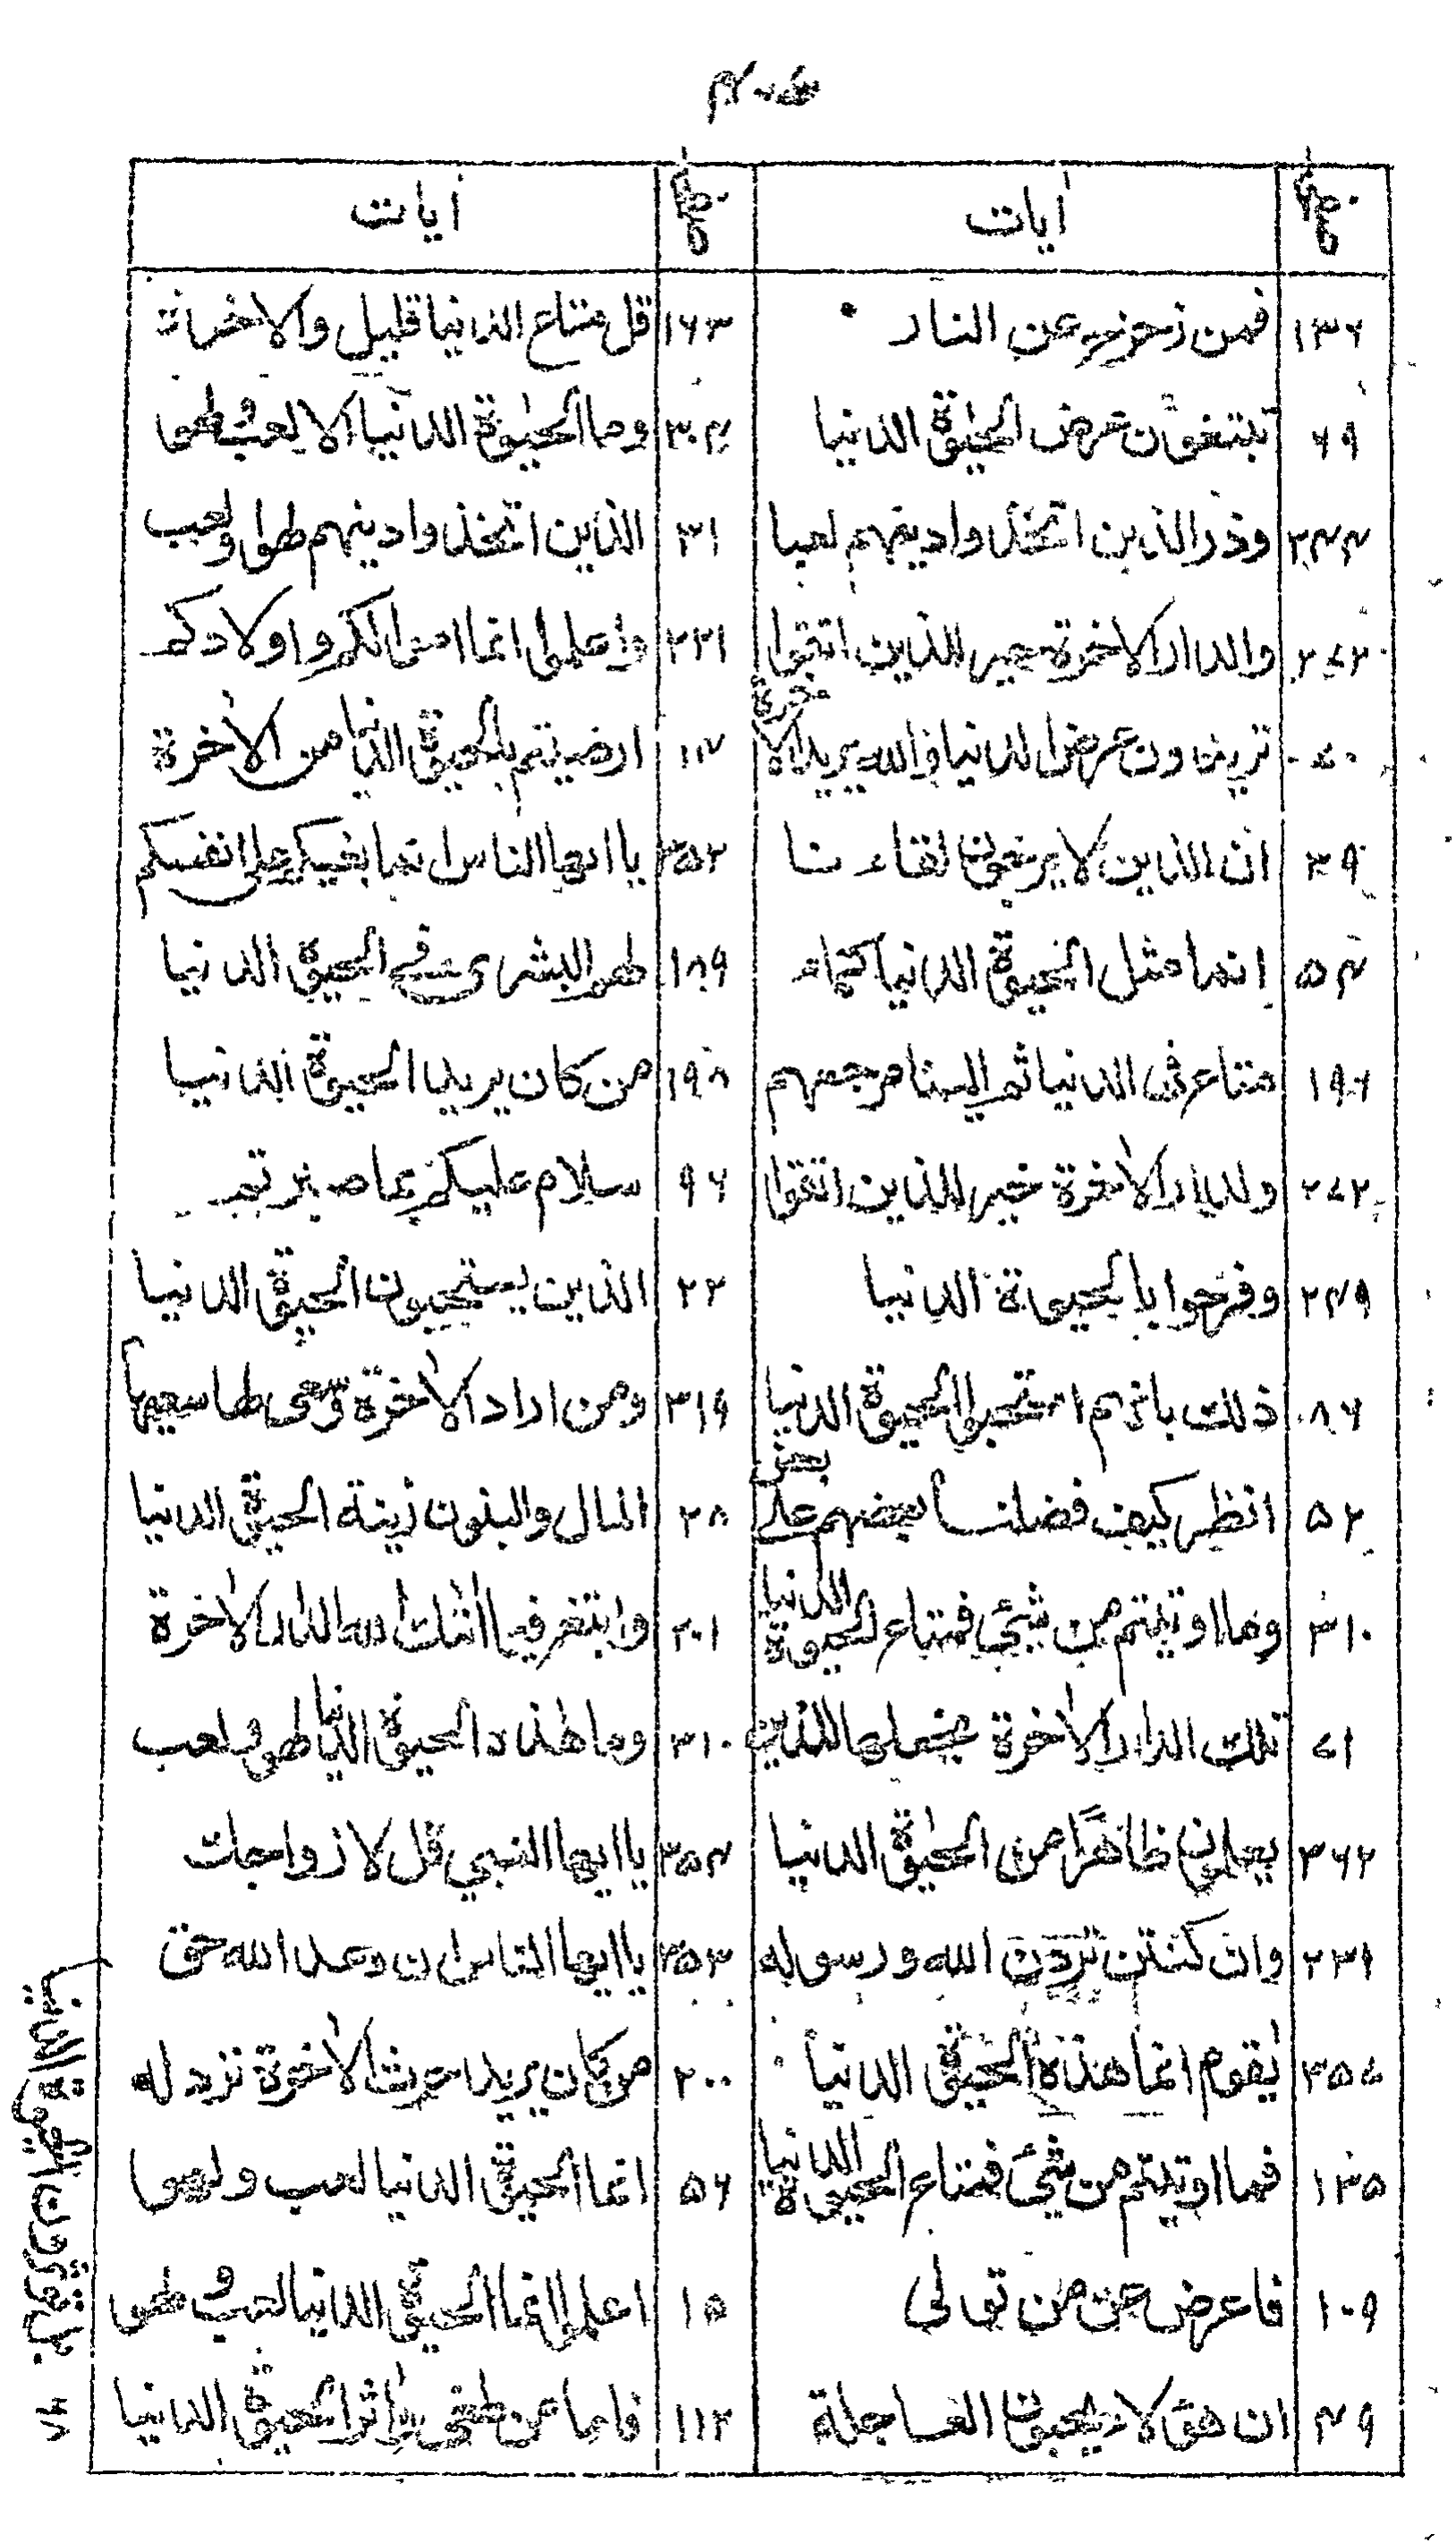 صفحہ آیات صفحہ آیات
۱۳۶ فمن زحزح عن النار ۱۶۳ قل متاع الدنيا قليل والاخرة
۶۹ تبتغون عرض الحیٰوة الدنیا وما الحیٰوة الدنیا الا لعب ولهو
وذر الذین اتخذوا دینهم لعبا ۳۱ الذین اتخذوا دینهم لهوا ولعب
والدار الاخرة خیر للذین اتقوا ۲۲۱ واعلموا انما اموالکم واولادکم
تریدون عرض الدنیا والله یرید الاخرة ارضیتم بالحیوة الدنیا من الاٰخرة
۳۹ ان الذین لا یرجون لقاءنا ۳۵۲ یا ایها الناس انما بغیکم علی انفسکم
۵۴ انما مثل الحیوة الدنیا کماء ۱۸۹ لهم البشری فی الحیوة الدنیا
۱۹۶ متاع فی الدنیا ثم الینا مرجعهم ۱۹۸ من کان یرید الحیوة الدنیا
۲۷۲ ولدار الاٰخرة خیر للذین اتقوا ۹۶ سلام علیکم بما صبرتم
۲۴۹ وفرحوا بالحیوة الدنیا ۲۲ الذین یستحبون الحیوة الدنیا
۸۶ ذلک بانهم استحبوا الحیوة الدنیا ۳۱۹ ومن اراد الاٰخرة وسعی لها سعیها
۵۲ انظر کیف فضلنا بعضهم علی بعض ۲۸ المال والبنون زینة الحیوة الدنیا
۳۱۰ وما اوتیتم من شیٔ فمتاع الحیوة الدنیا ۳۰۱ وابتغ فیما اٰتٰک الله الدار الاٰخرة
۷۱ تلک الدار الاٰخرة نجعلها للذین ۳۱۰ وما هٰذه الحیوة الدنیا لهو ولعب
۳۶۲ یعلمون ظاهرًا من الحیٰوة الدنیا ۳۵۴ یا ایها النبی قل لازواجک
۲۳۱ وان کنتن تردن الله ورسوله ۳۵۳ یا ایها الناس ان وعد الله حق
۳۵۷ یٰقوم انما هذه الحیٰوة الدنیا ۲۰۰ من کان یرید حرث الاٰخرة نزد له
۱۳۵ فما اوتیتم من شیٔ فمتاع الحیوة الدنیا ۵۶ انما الحیوة الدنیا لعب ولهو
۱۰۹ فاعرض عن من تولی ۱۵ اعلموا انما الحیوة الدنیا لعب ولهو
۴۹ ان هؤلاء یحبون العاجلة ۱۱۲ فاما من طغی واٰثر الحیوة الدنیا
بل تؤثرون الحیوة الدنیا ۶۸